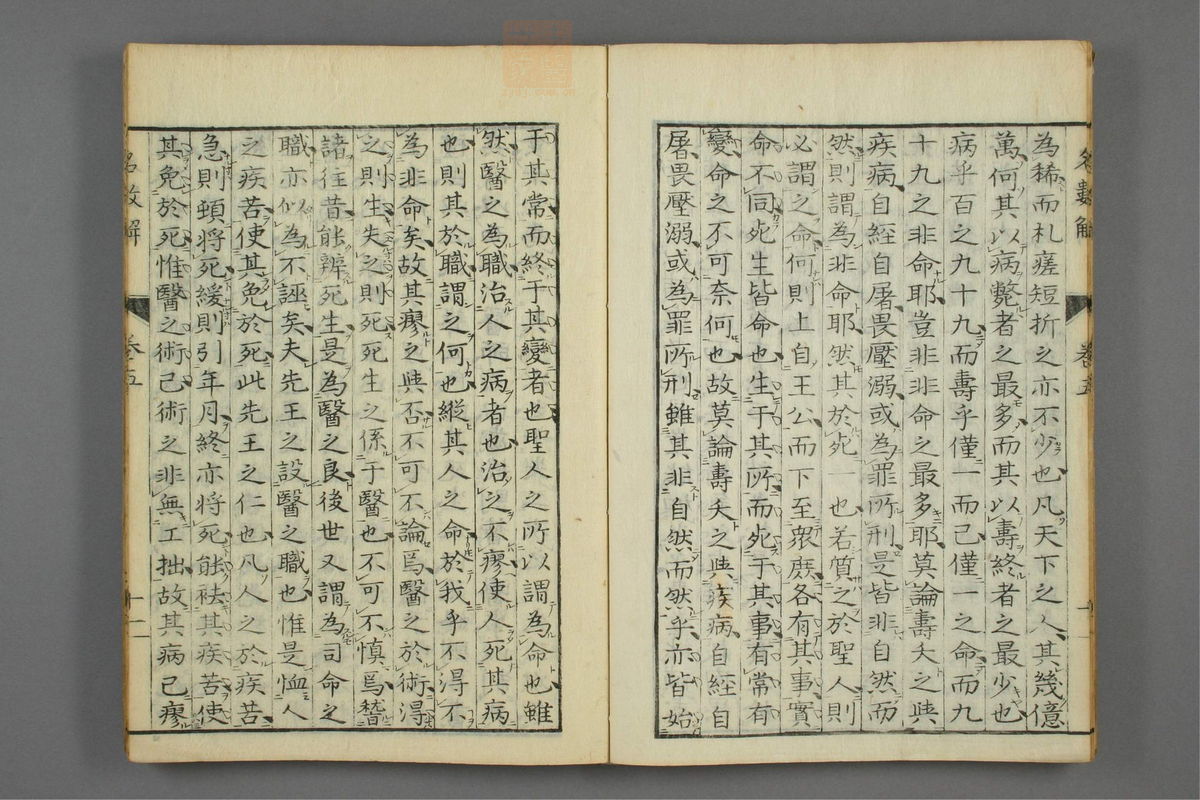 為稀而札瘥短折之亦不少也凡天下之人其幾億
萬何其以病斃者之最多而其以壽終者之最少也
病乎百之九十九而壽乎僅一而已僅一之命而九
十九之非命耶豈非非命之最多耶莫論壽夭之與
疾病自經自屠畏壓溺或為罪所刑是皆非自然而
然則謂為非命耶然其於死一也若質之於聖人則
必謂之命何則上自王公而下至眾庶各有其事實
命不同死生皆命也生于其所而死于其事有常有
變命之不可奈何也故莫論壽夭之與疾病自經自
屠畏壓溺或為罪所刑雖其非自然而然乎亦皆始
名數解
卷五
于其常而終于其變者也聖人之所以謂為命也雖
然醫之為職治人之病者也治之不瘳使人死其病
也則其於職謂之何也縱其人之命於我乎不得不
為非命矣故其瘳之與否不可不論焉醫之於術得
之則生失之則死死生之係于醫也不可不慎焉嘗
諸往昔能辨死生是為醫之良後世又謂為司命之
職亦似為不誣矣夫先王之設醫之職也惟是恤人
之疾苦使其免於死此先王之仁也凡人之於疾苦
急則頓將死緩則引年月終亦將死能袪其疾苦使
其免於死惟醫之術已術之非無工拙故其病已瘳
名數解
卷五